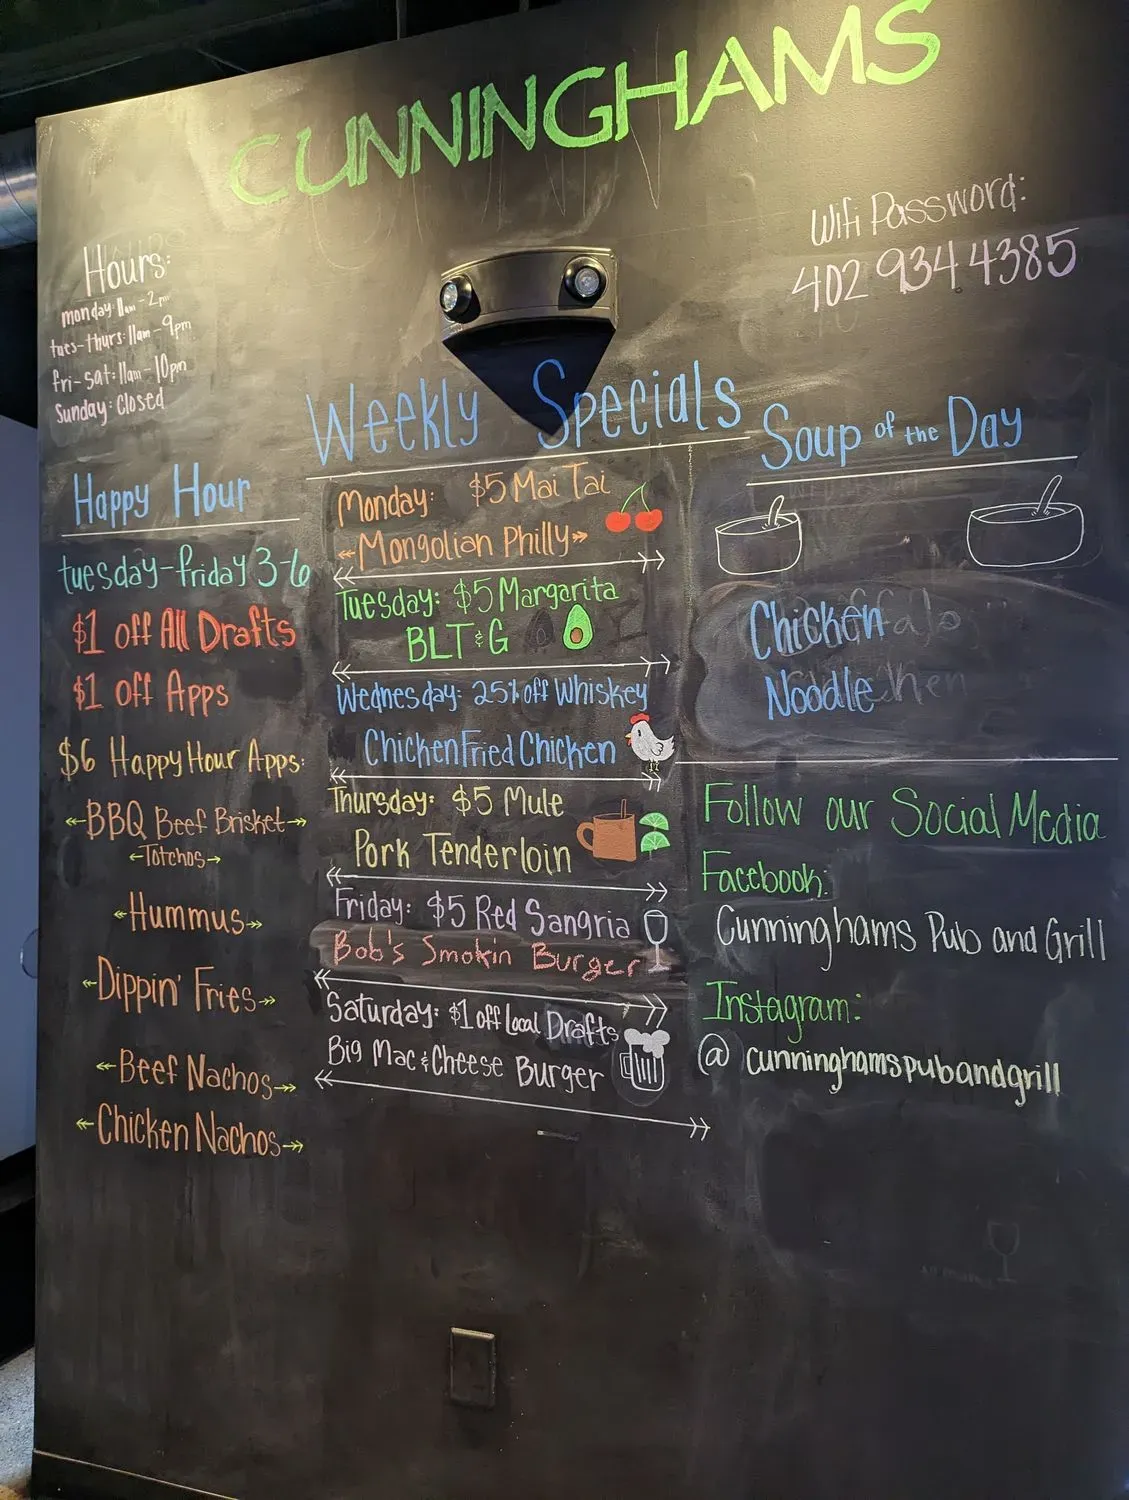 CUNNINGHAMS
Wifi Password:
402 934 4385
Hours:
monday: 11am-2pm
tues-thurs: 11am-9pm
fri-sat: 11am-10pm
Sunday: Closed
Happy Hour
tuesday-friday 3-6
$1 off All Drafts
$1 off Apps
$6 Happy Hour Apps:
BBQ Beef Brisket
Totchos
Hummus
Dippin' Fries
Beef Nachos
Chicken Nachos
Weekly Specials
Monday: $5 Mai Tai
Mongolian Philly
Tuesday: $5 Margarita
BLT & G
Wednesday: 25% off Whiskey
Chicken Fried Chicken
Thursday: $5 Mule
Pork Tenderloin
Friday: $5 Red Sangria
Bob's Smokin Burger
Saturday: $1 off Local Drafts
Big Mac & Cheese Burger
Soup of the Day
Chicken
Noodle
Follow our Social Media
Facebook:
Cunninghams Pub and Grill
Instagram:
@cunninghamspubandgrill